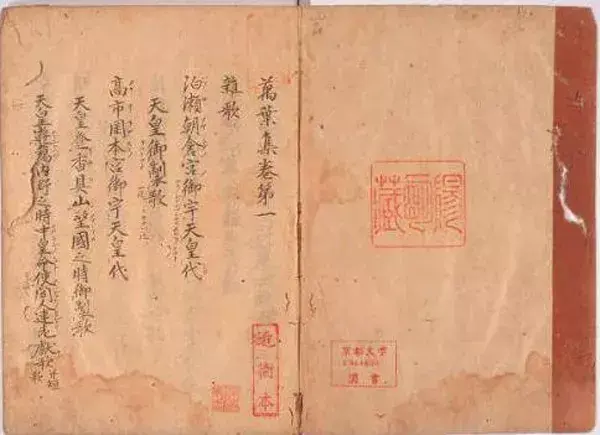 京都大學
圖書
萬葉集巻第一
雜歌
泊瀬朝倉宮御宇天皇代
天皇御製歌
髙市岡本宮御宇天皇代
天皇登香具山望國之時御製歌
天皇遊獦内野之時中皇命使間人連老獻歌并短歌
近衛本